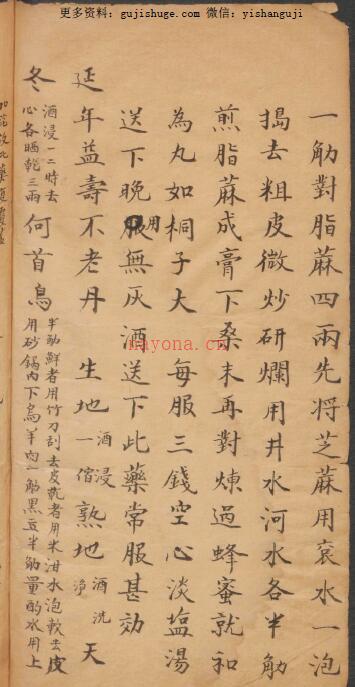 更多资料：gujishuge.com 微信：yishanguji
一觔對脂蔴四兩先將芝蔴用衮水一泡
搗去粗皮微炒研爛用井水河水各半觔
煎脂蔴成膏下桑末再對煉過蜂蜜就和
為丸如桐子大 每服三錢空心淡塩湯
送下晚服用無灰酒送下此藥常服甚効
延年益壽不老丹 生地 酒浸一宿 熟地 酒洗淨 天
冬 酒浸一二時去心各晒乾三兩 何首烏 半觔鮮者用竹刀刮去皮乾者用米泔水泡軟去皮用砂鍋內下烏羊肉一觔黑豆半觔量酌水用上
nayona.cn